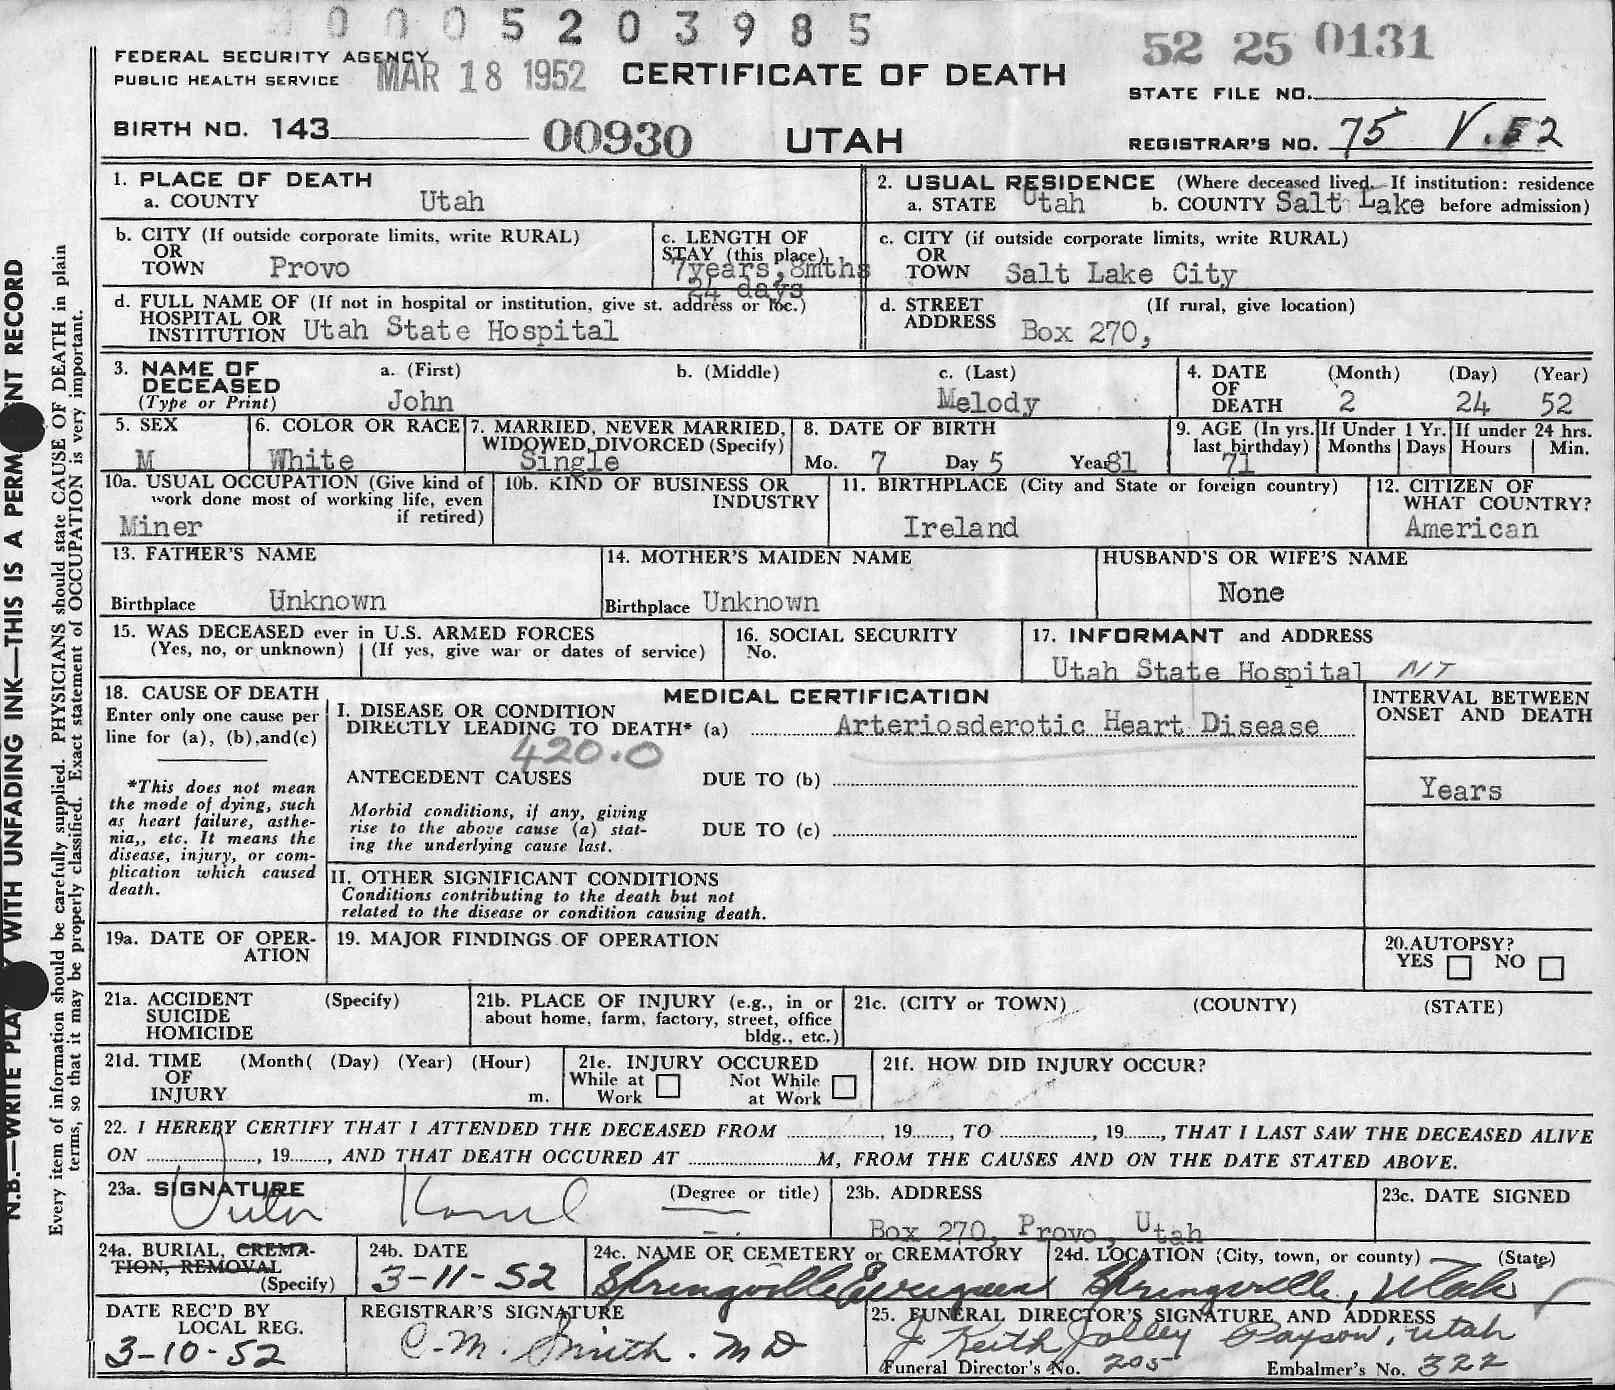 0 0 0 5 2 0 3 9 8 5
52 25 0131
FEDERAL SECURITY AGENCY
PUBLIC HEALTH SERVICE
MAR 18 1952
CERTIFICATE OF DEATH
STATE FILE NO.
BIRTH NO. 143
00930
UTAH
REGISTRAR'S NO. 75 V.52
1. PLACE OF DEATH
a. COUNTY Utah
2. USUAL RESIDENCE (Where deceased lived. If institution: residence
a. STATE Utah b. COUNTY Salt Lake before admission)
b. CITY (If outside corporate limits, write RURAL)
OR
TOWN Provo
c. LENGTH OF
STAY (this place)
7years, 8mths
24 days
c. CITY (if outside corporate limits, write RURAL)
OR
TOWN Salt Lake City
d. FULL NAME OF (If not in hospital or institution, give st. address or loc.)
HOSPITAL OR
INSTITUTION Utah State Hospital
d. STREET (If rural, give location)
ADDRESS Box 270,
3. NAME OF a. (First) b. (Middle) c. (Last)
DECEASED
(Type or Print) John Melody
4. DATE (Month) (Day) (Year)
OF
DEATH 2 24 52
5. SEX
M
6. COLOR OR RACE
White
7. MARRIED, NEVER MARRIED,
WIDOWED, DIVORCED (Specify)
Single
8. DATE OF BIRTH
Mo. 7 Day 5 Year 81
9. AGE (In yrs.
last birthday)
71
If Under 1 Yr.
Months Days
If under 24 hrs.
Hours Min.
10a. USUAL OCCUPATION (Give kind of
work done most of working life, even
if retired)
Miner
10b. KIND OF BUSINESS OR
INDUSTRY
11. BIRTHPLACE (City and State or foreign country)
Ireland
12. CITIZEN OF
WHAT COUNTRY?
American
13. FATHER'S NAME
Birthplace Unknown
14. MOTHER'S MAIDEN NAME
Birthplace Unknown
HUSBAND'S OR WIFE'S NAME
None
15. WAS DECEASED ever in U.S. ARMED FORCES
(Yes, no, or unknown) (If yes, give war or dates of service)
16. SOCIAL SECURITY
No.
17. INFORMANT and ADDRESS
Utah State Hospital NT
18. CAUSE OF DEATH
Enter only one cause per
line for (a), (b),and(c)
*This does not mean
the mode of dying, such
as heart failure, asthe-
nia,, etc. It means the
disease, injury, or com-
plication which caused
death.
MEDICAL CERTIFICATION
I. DISEASE OR CONDITION
DIRECTLY LEADING TO DEATH* (a) Arteriosderotic Heart Disease
420.0
ANTECEDENT CAUSES DUE TO (b)
Morbid conditions, if any, giving
rise to the above cause (a) stat-
ing the underlying cause last.
DUE TO (c)
INTERVAL BETWEEN
ONSET AND DEATH
Years
II. OTHER SIGNIFICANT CONDITIONS
Conditions contributing to the death but not
related to the disease or condition causing death.
19a. DATE OF OPER-
ATION
19. MAJOR FINDINGS OF OPERATION
20.AUTOPSY?
YES NO
21a. ACCIDENT (Specify)
SUICIDE
HOMICIDE
21b. PLACE OF INJURY (e.g., in or
about home, farm, factory, street, office
bldg., etc.)
21c. (CITY or TOWN) (COUNTY) (STATE)
21d. TIME (Month( (Day) (Year) (Hour)
OF
INJURY m.
21e. INJURY OCCURED
While at Work Not While at Work
21f. HOW DID INJURY OCCUR?
22. I HEREBY CERTIFY THAT I ATTENDED THE DECEASED FROM , 19 , TO , 19 , THAT I LAST SAW THE DECEASED ALIVE
ON , 19 , AND THAT DEATH OCCURED AT M, FROM THE CAUSES AND ON THE DATE STATED ABOVE.
23a. SIGNATURE (Degree or title)
23b. ADDRESS
Box 270, Provo, Utah
23c. DATE SIGNED
24a. BURIAL, CREMA-
TION, REMOVAL
(Specify)
24b. DATE
3-11-52
24c. NAME OF CEMETERY or CREMATORY
Springville Evergreen
24d. LOCATION (City, town, or county) (State)
Springville, Utah
DATE REC'D BY
LOCAL REG.
3-10-52
REGISTRAR'S SIGNATURE
C.M. Smith. MD
25. FUNERAL DIRECTOR'S SIGNATURE AND ADDRESS
J Keith Jolley Payson, Utah
Funeral Director's No. 205 Embalmer's No. 322
N.B.—WRITE WITH UNFADING INK—THIS IS A RECORD
Every item of information should be carefully supplied. PHYSICIANS should state CAUSE OF DEATH in plain
terms, so that it may be properly classified. Exact statement of OCCUPATION is very important.